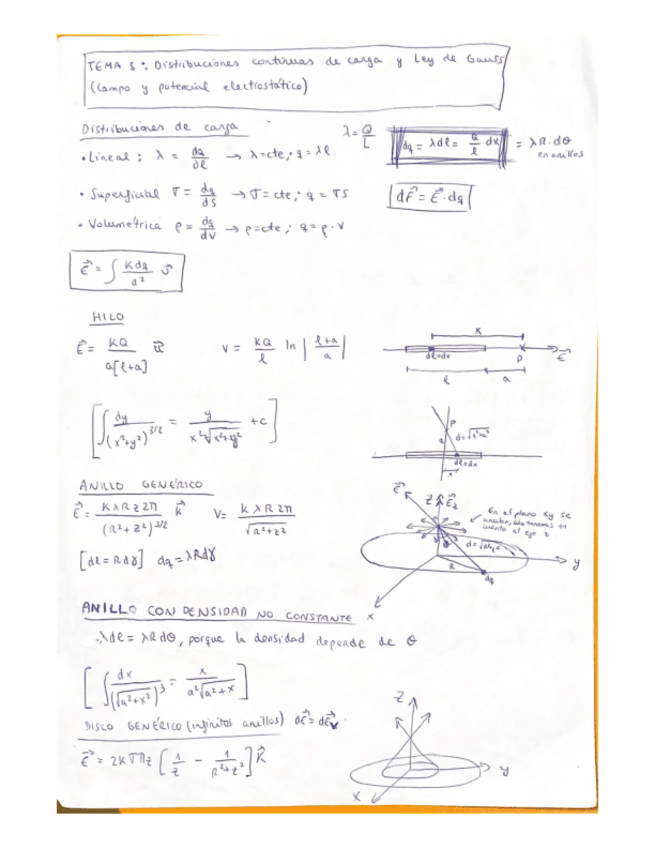 TEMA 3: Distribuciones continuas de carga y Ley de Gauss
(Campo y potencial electrostático)
Distribuciones de carga
λ = Q/L
dq = λdl = Q/l dx = λR·dθ
en anillos
• Lineal: λ = dq/dl → λ=cte; q = λl
• Superficial σ = dq/ds → σ=cte; q = σS
dF⃗ = E⃗·dq
• Volumétrica ρ = dq/dv → ρ=cte; q = ρ·V
E⃗ = ∫ Kdq/a² u⃗
HILO
E⃗ = KQ/a[l+a] u⃗
V = KQ/l ln |l+a/a|
x
dl=dx
P
E⃗
l
a
[∫ dy/(x²+y²)^3/2 = y/x²√x²+y² + c]
P
a
d=√x²+a²
dl=dx
x
ANILLO GENÉRICO
E⃗ = KλRz2π/(R²+z²)^3/2 k⃗
V = KλR2π/√R²+z²
[dl=Rdγ] dq=λRdγ
E⃗
Z
E⃗z
En el plano xy se
anulan, solo tenemos en
cuenta el eje z.
R
dq
y
x
ANILLO CON DENSIDAD NO CONSTANTE
λdl = λRdθ, porque la densidad depende de θ
[∫ dx/(√a²+x²)³ = x/a²√a²+x]
DISCO GENÉRICO (infinitos anillos)
E⃗ = 2Kσπz [1/z - 1/R²+z²] k⃗
Z
y
x